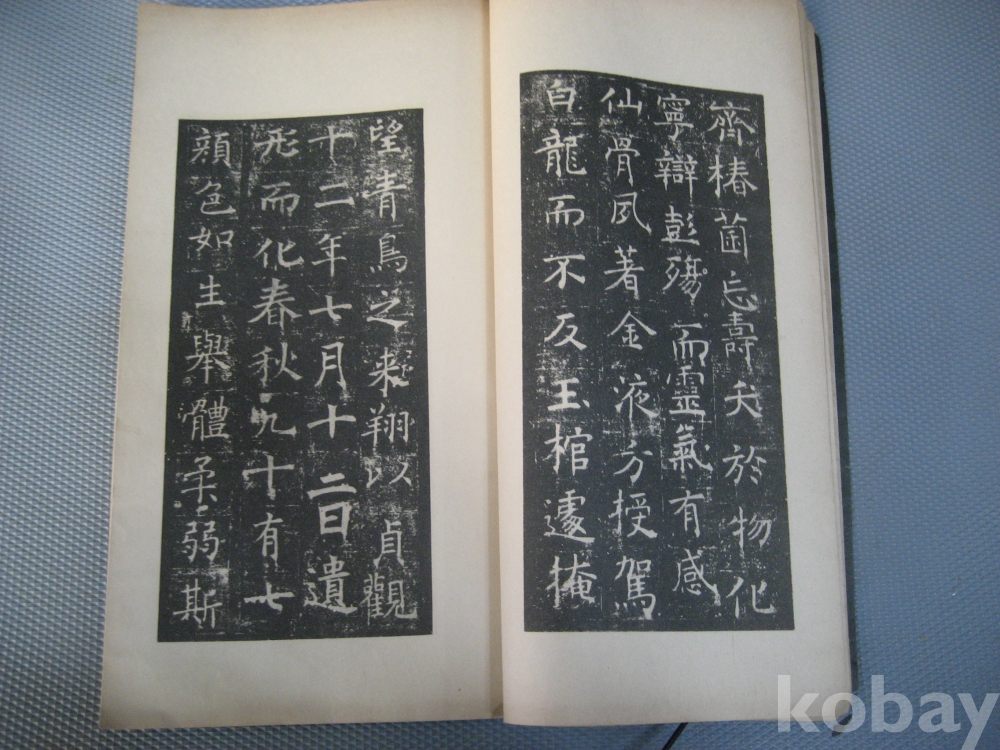 齊椿菌忘壽夭於物化
寧辯彭殤而靈氣有感
仙骨夙著金液方授駕
白龍而不反玉棺遽掩
望青鳥之來翔以貞觀
十二年七月十二日遺
形而化春秋九十有七
顔色如生舉體柔弱斯
kobay